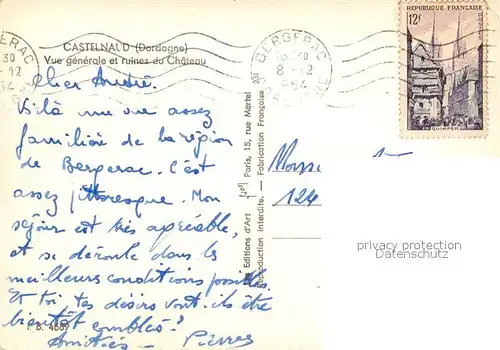 CASTELNAUD (Dordogne)
Vue générale et ruines du Château
Cher André.
Voilà une vue assez
familière de la région
de Bergerac. C'est
assez pittoresque. Mon
séjour est très agréable,
et se déroule dans les
meilleurs conditions possibles.
Et toi, tes désirs vont-ils être
bientôt comblés?
Amitiés - Pierre
I. B. 4689
Editions d'Art
Paris, 15, rue Martel
Reproduction interdite. - Fabrication Française
BERGERAC
8-12
1954
RÉPUBLIQUE FRANÇAISE
12F
QUIMPER
Mons
124
privacy protection
AKPOOL